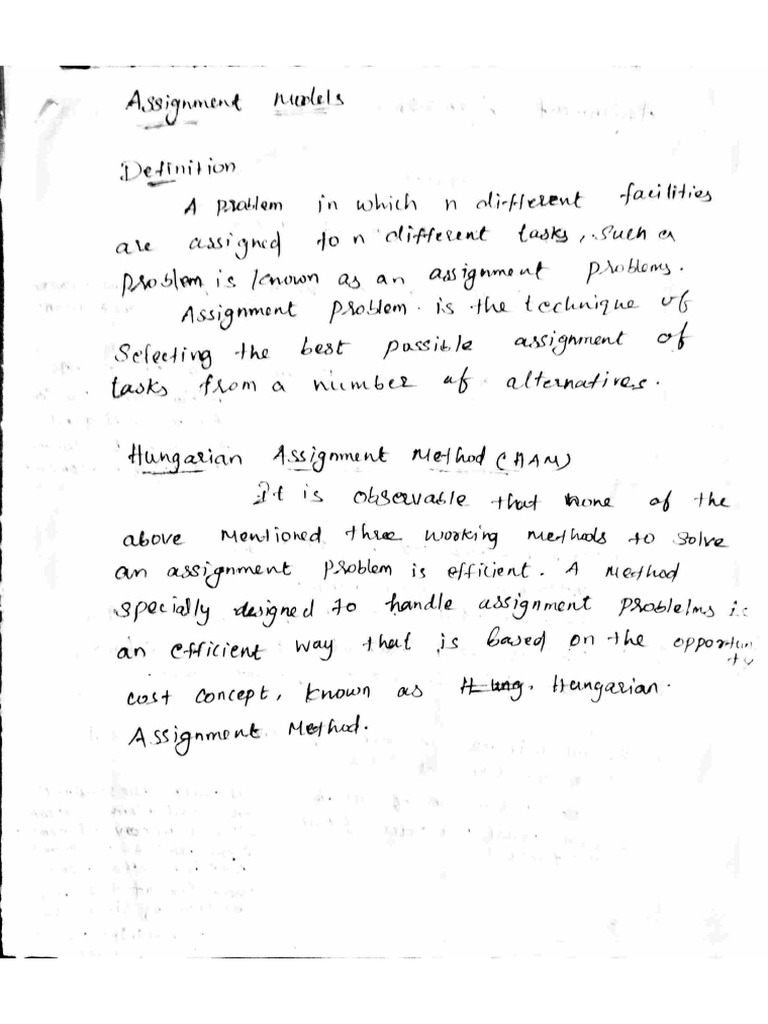 Assignment Models
Definition
A problem in which n different facilities
are assigned to n different tasks, such a
problem is known as an assignment problems.
Assignment problem is the technique of
selecting the best possible assignment of
tasks from a number of alternatives.
Hungarian Assignment Method (HAM)
It is observable that none of the
above mentioned three working methods to solve
an assignment problem is efficient. A method
specially designed to handle assignment problelms is
an efficient way that is based on the opportun
ty
cost concept, known as H ung. Hungarian.
Assignment Method.